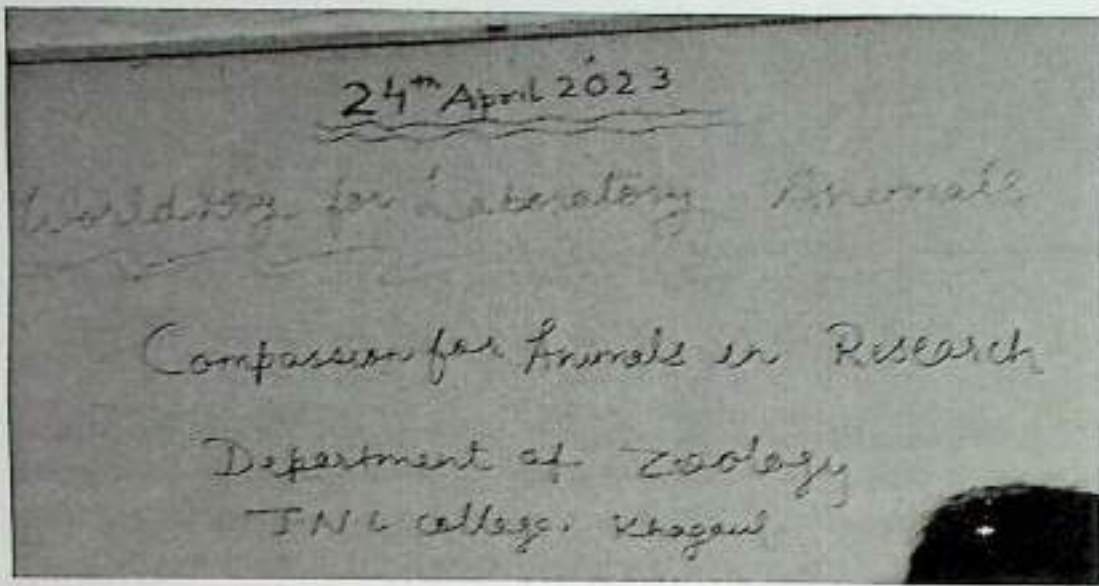 24th April 2023
World day for Laboratory Animals
Compassion for Animals in Research
Department of Zoology
JNL College, Khagaul